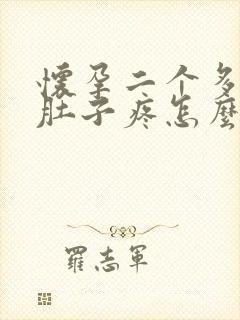 懷孕二个多
肚子疼怎麼
羅志軍